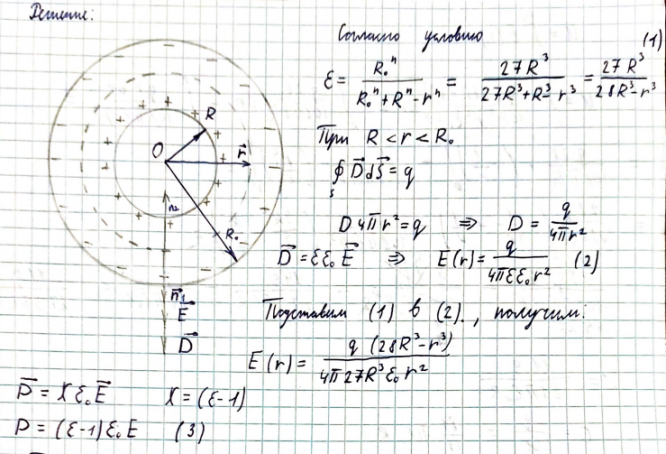 Решение:
Согласно условию (1)
ε = R₀ⁿ / (R₀ⁿ + Rⁿ - rⁿ) = 27R³ / (27R³ + R³ - r³) = 27R³ / (28R³ - r³)
При R < r < R₀
∮ₛ D⃗ dS⃗ = q
D 4πr² = q ⇒ D = q / 4πr²
D⃗ = εε₀E⃗ ⇒ E(r) = q / 4πεε₀r² (2)
Подставим (1) в (2), получим:
E(r) = q (28R³ - r³) / 4π27R³ε₀r²
P⃗ = χε₀E⃗ χ = (ε-1)
P = (ε-1)ε₀E (3)
O
R
r⃗
R₀
n₂
n⃗₁
E⃗
D⃗